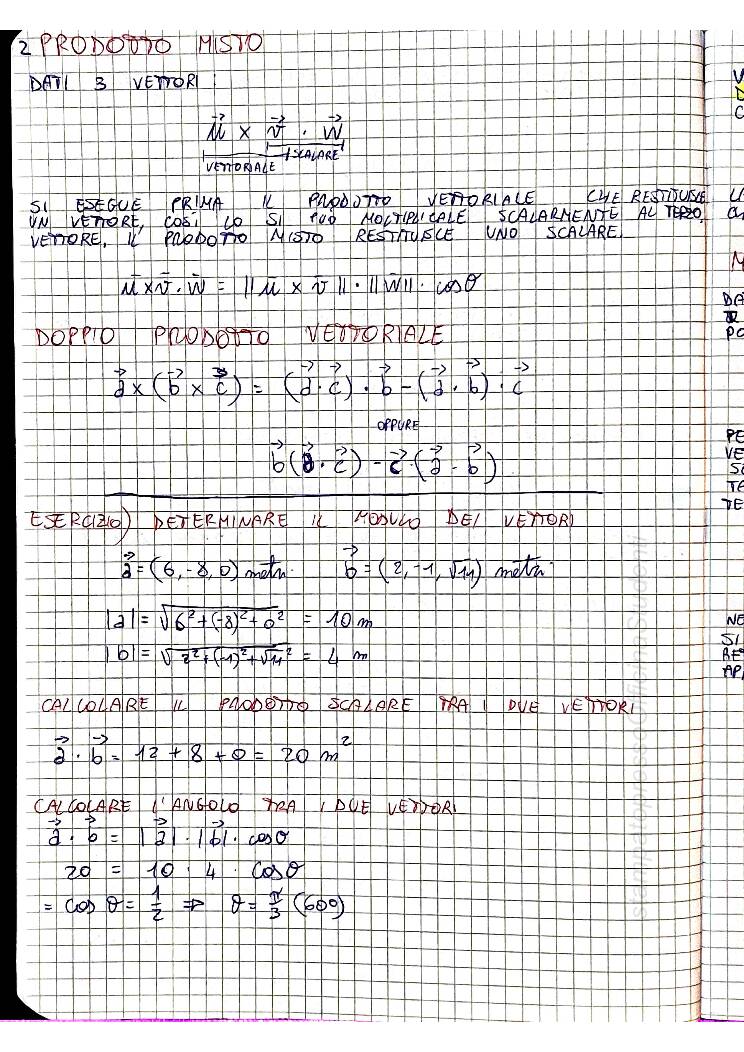 2 PRODOTTO MISTO
DATI 3 VETTORI:
u⃗ × v⃗ · w⃗
SCALARE
VETTORIALE
SI ESEGUE PRIMA IL PRODOTTO VETTORIALE CHE RESTITUISCE
UN VETTORE, COSÌ LO SI PUÒ MOLTIPLICALE SCALARMENTE AL TERZO
VETTORE. IL PRODOTTO MISTO RESTITUISCE UNO SCALARE.
ū × v̄ · w̄ = ||ū × v̄|| · ||w̄|| · cosθ
DOPPIO PRODOTTO VETTORIALE
a⃗ × (b⃗ × c⃗) = (a⃗ · c⃗) · b⃗ - (a⃗ · b⃗) · c⃗
OPPURE
b⃗(a⃗ · c⃗) - c⃗ · (a⃗ · b⃗)
ESERCIZIO) DETERMINARE IL MODULO DEI VETTORI
a⃗ = (6, -8, 0) metri. b⃗ = (2, -1, √11) metri
|a| = √6² + (-8)² + 0² = 10 m
|b| = √2² + (-1)² + √11² = 4 m
CALCOLARE IL PRODOTTO SCALARE TRA I DUE VETTORI
a⃗ · b⃗ = 12 + 8 + 0 = 20 m²
CALCOLARE L'ANGOLO TRA I DUE VETTORI
a⃗ · b⃗ = |a⃗| · |b⃗| · cosθ
20 = 10 · 4 · cosθ
= cos θ = 1/2 ⇒ θ = π/3 (60°)
stampatopressoOfficinaStudenti